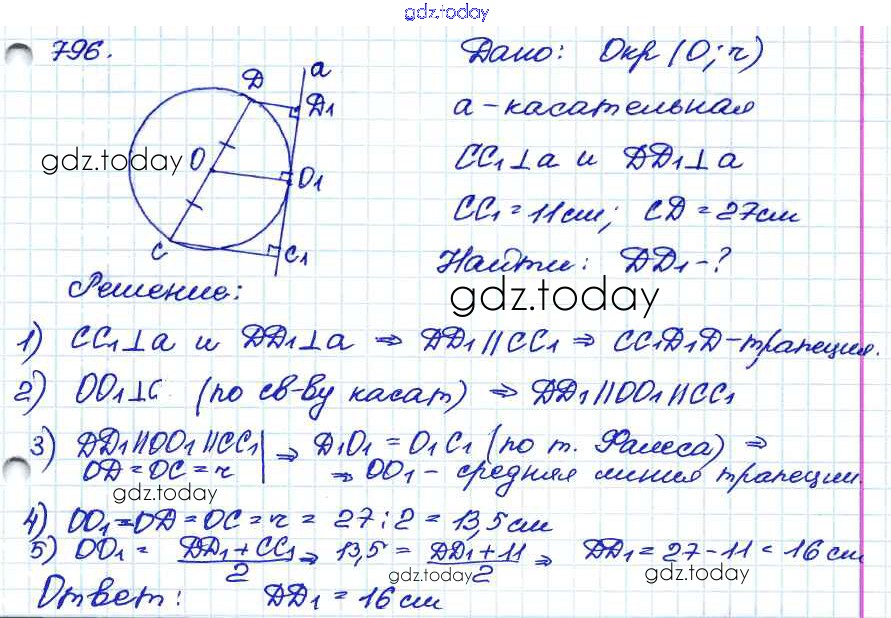 gdz.today
796.
Дано: Окр (О; r)
a
D
D1
a - касательная
gdz.today
O
O1
CC1⊥a и DD1⊥a
CC1 = 11см; CD = 27см
C
C1
Найти: DD1 - ?
Решение:
gdz.today
1) CC1⊥a и DD1⊥a ⇒ DD1 // CC1 ⇒ CC1D1D - трапеция.
2) OO1⊥C (по св-ву касат) ⇒ DD1//OO1//CC1
3) DD1//OO1//CC1 | ⇒ D1O1 = O1C1 (по т. Фалеса) ⇒
OD = OC = r ⇒ OO1 - средняя линия трапеции.
gdz.today
4) OO1 = OD = OC = r = 27 : 2 = 13,5 см
5) OO1 = (DD1 + CC1)/2 ⇒ 13,5 = (DD1 + 11)/2 ⇒ DD1 = 27 - 11 = 16 см
gdz.today
gdz.today
Ответ: DD1 = 16 см